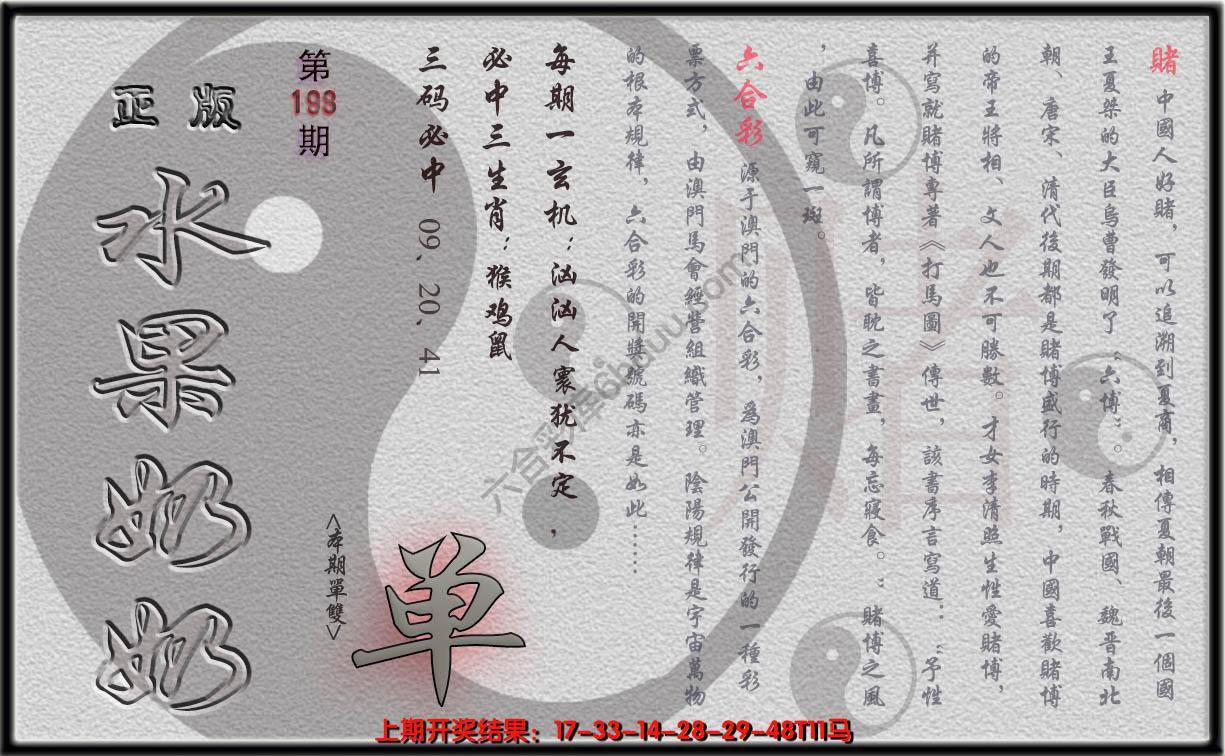 賭 中國人好賭，可以追溯到夏商，相傳夏朝最後一個國
王夏桀的大臣烏曹發明了“六博”。春秋戰國、魏晋南北
朝、唐宋、清代後期都是賭博盛行的時期，中國喜歡賭博
的帝王將相、文人也不可勝數。才女李清照生性愛賭博，
并寫就賭博專著《打馬圖》傳世，該書序言寫道：“予性
喜博。凡所謂博者，皆耽之書畫，每忘寢食。”賭博之風
，由此可窺一斑。
六合彩 源于澳門的六合彩，爲澳門公開發行的一種彩
票方式，由澳門馬會經營組織管理。陰陽規律是宇宙萬物
的根本規律，六合彩的開獎號碼亦是如此……
每期一玄机：汹汹人寰犹不定，
必中三生肖：猴鸡鼠
三码必中 09、20、41
单
<本期單雙>
第
198
期
正版
水果奶奶
賭
上期开奖结果：17-33-14-28-29-48T11马